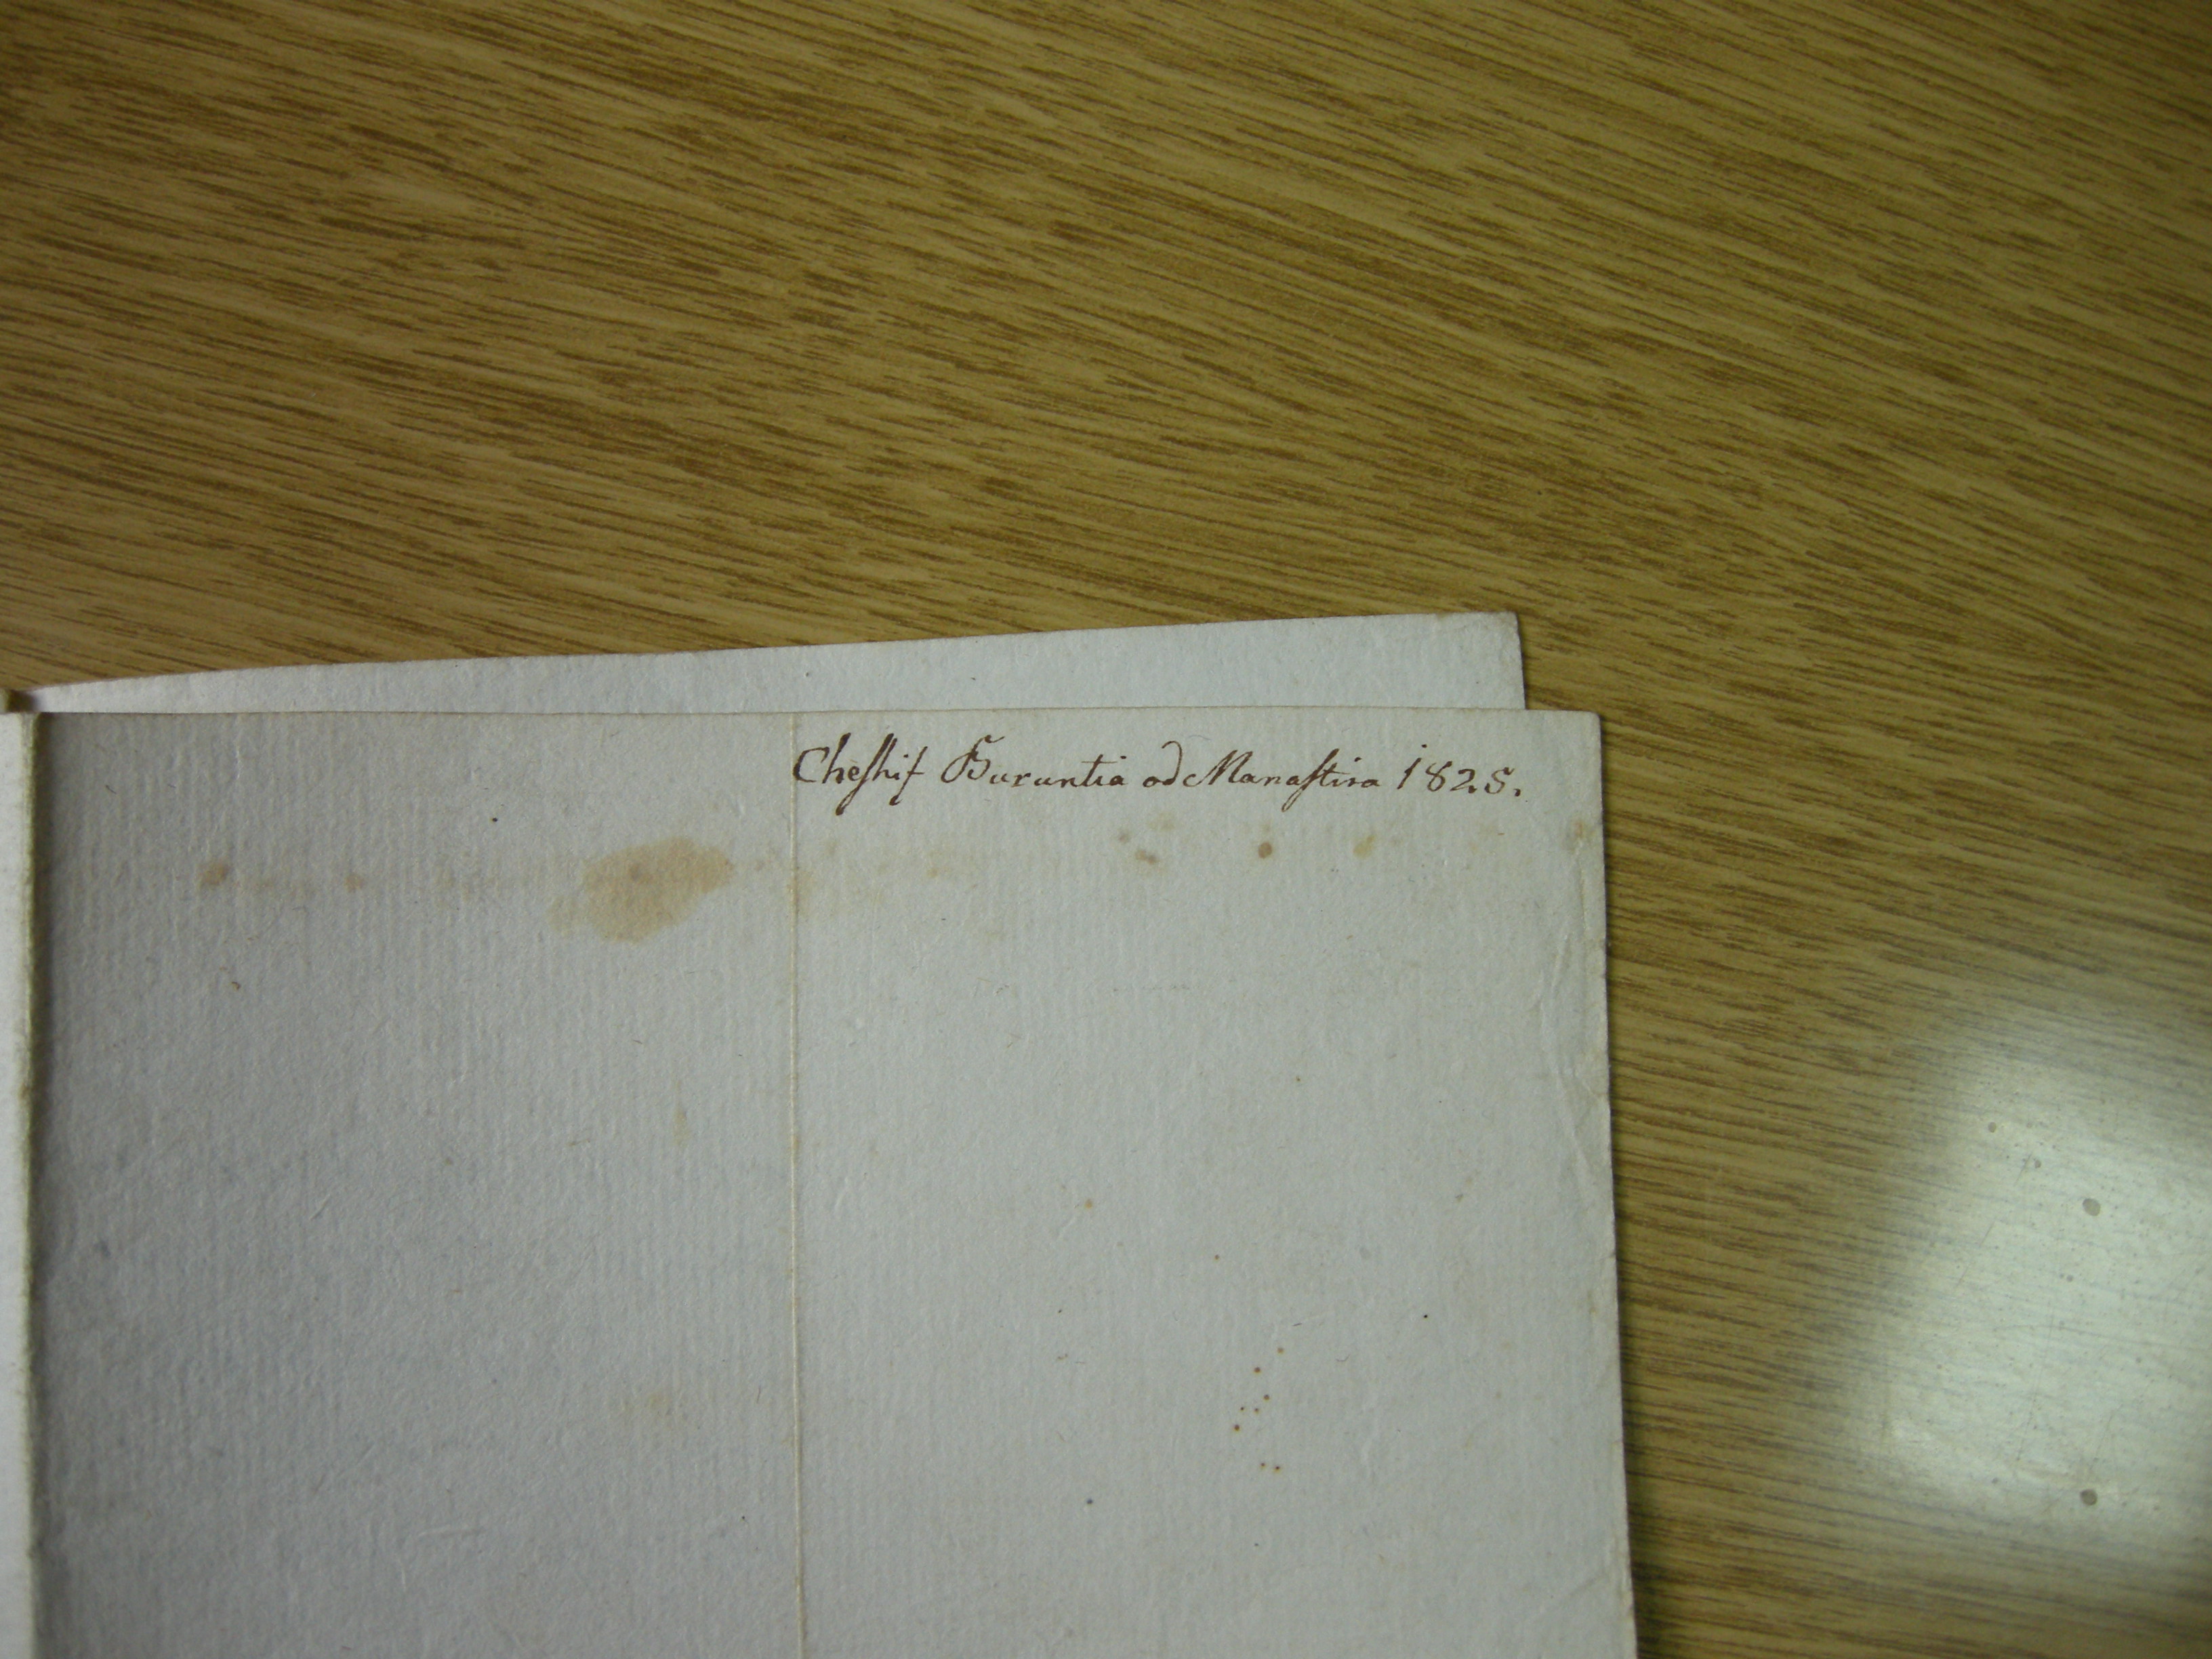 Cheſhif Buruntia od Manaſtira 1825.